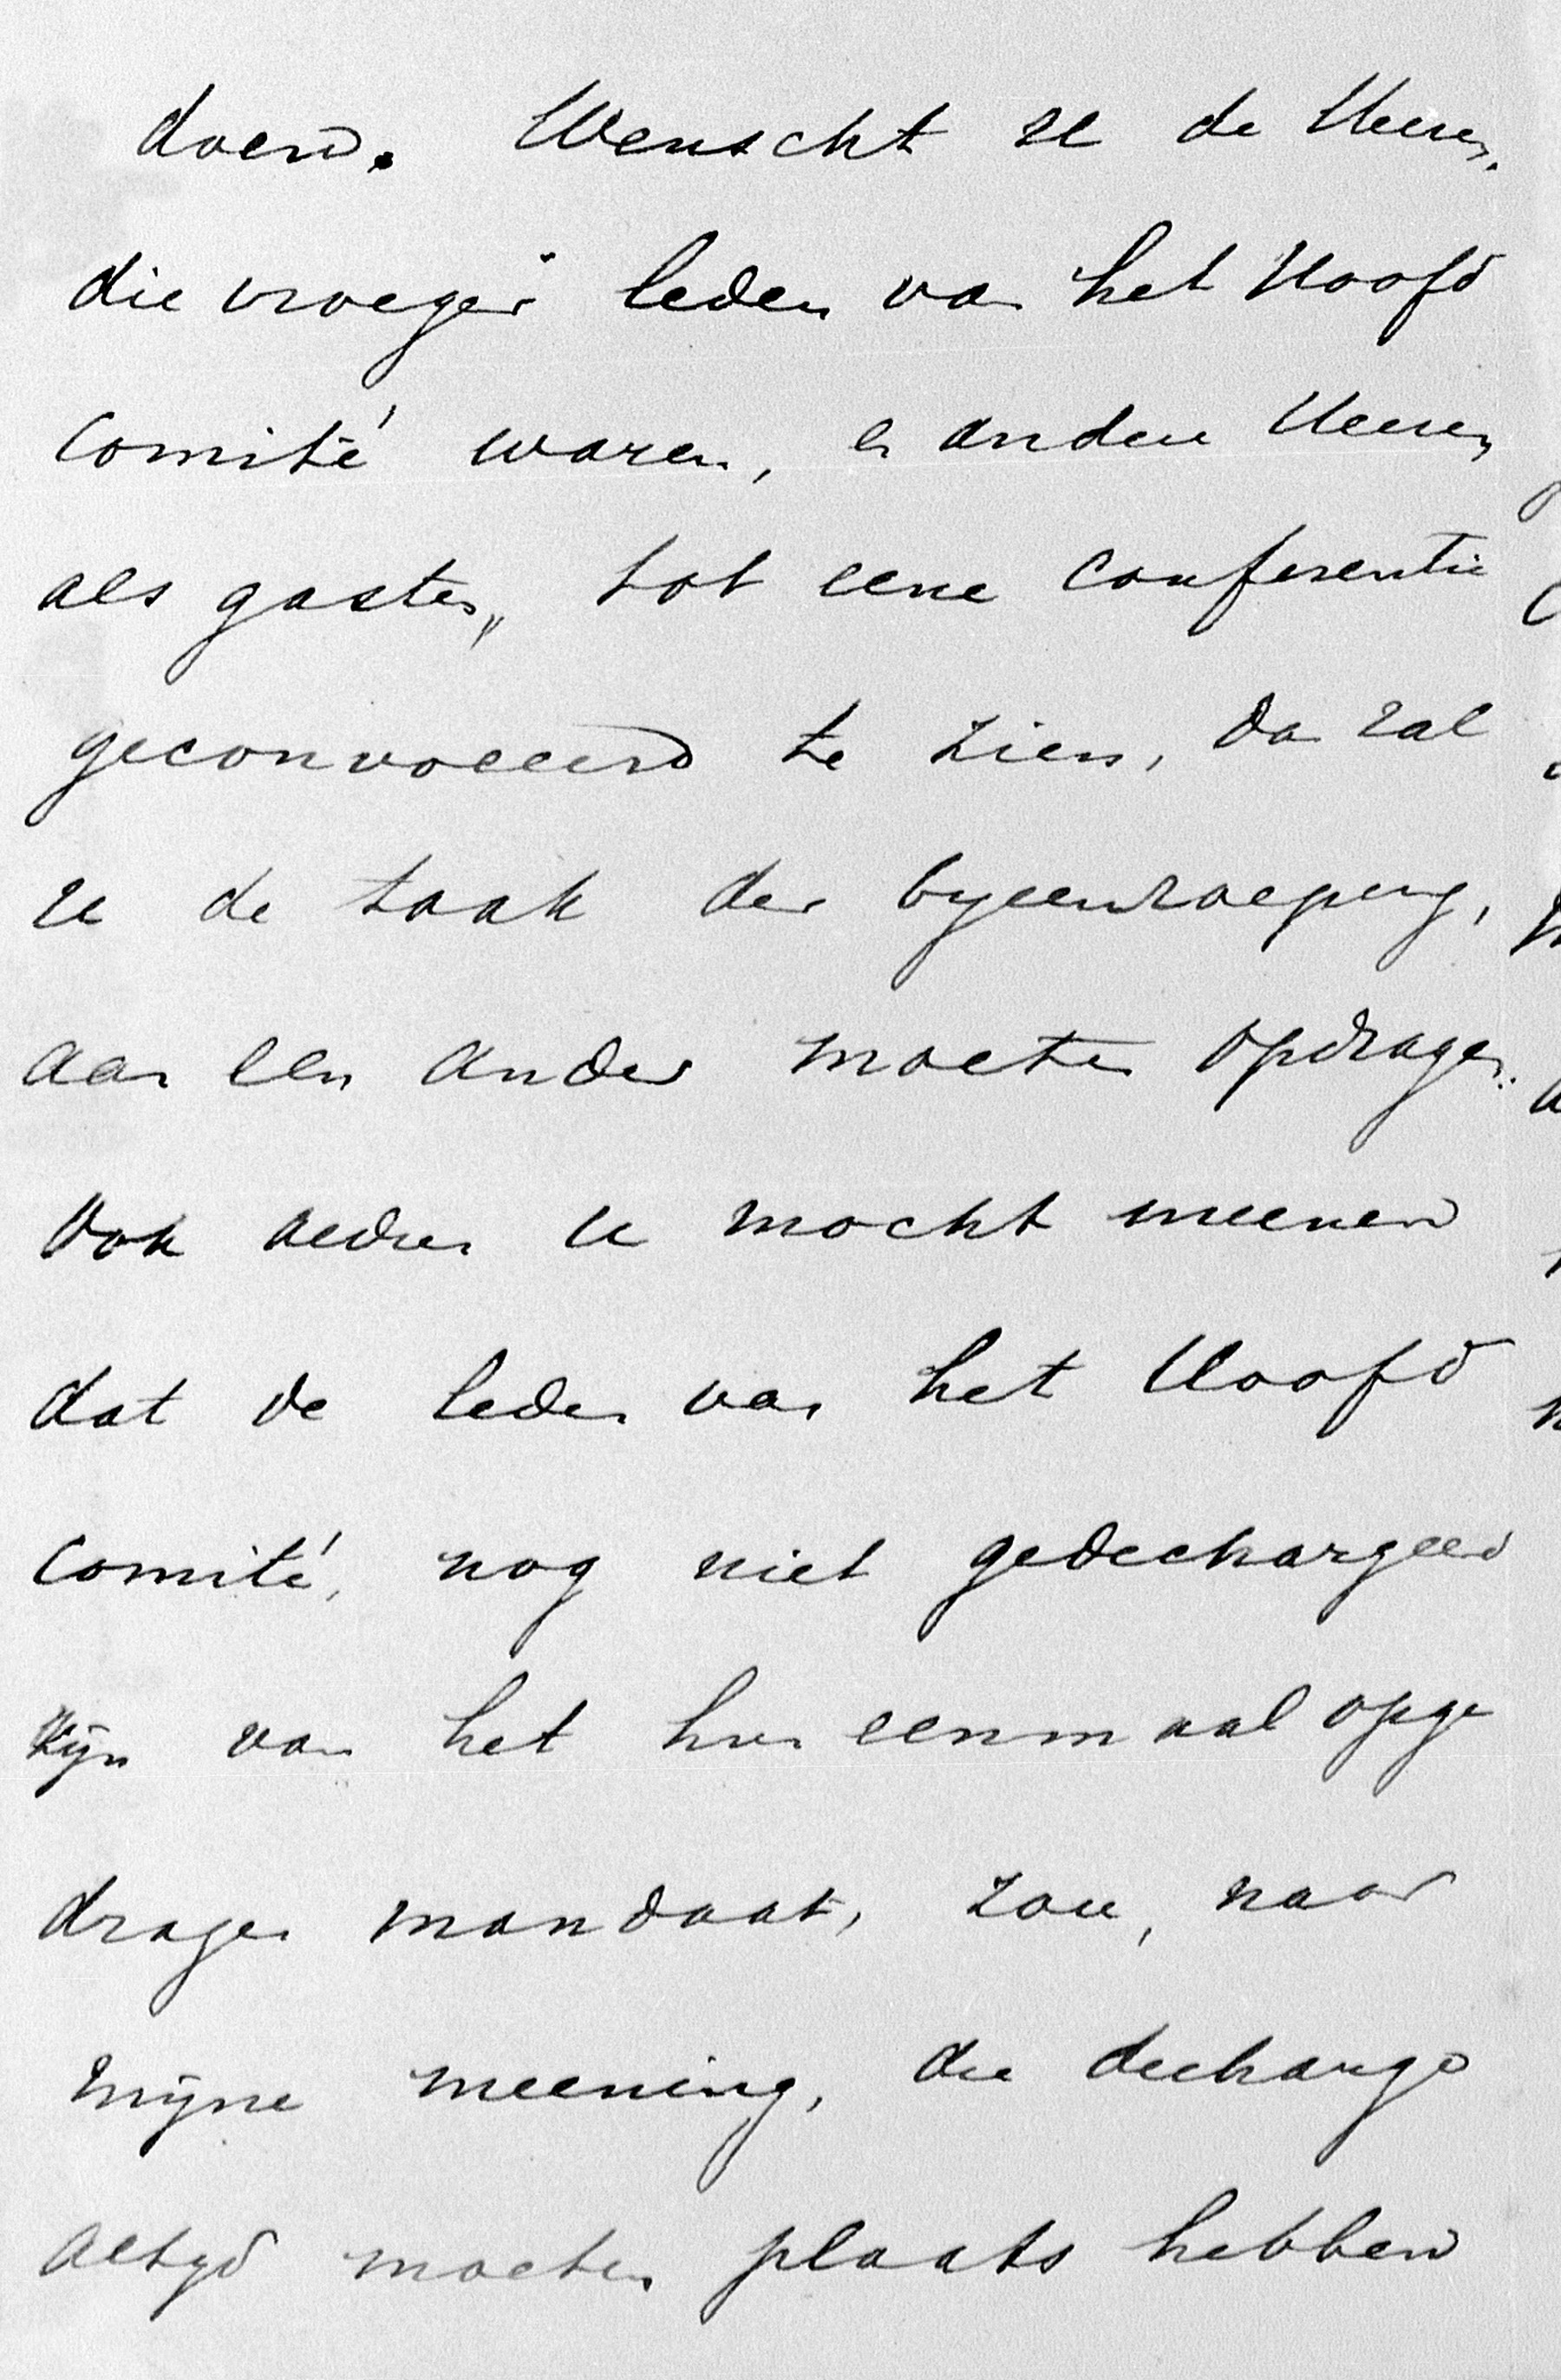 doen. Wenscht U de Heeren,
die vroeger leden van het Hoofd
Comité waren, en andere Heeren
als gasten, tot eene conferentie
geconvoceerd te zien, dan zal
U de taak der byeenroeping,
aan een ander moeten opdragen.
Ook indien U mocht meenen
dat de leden van het Hoofd
Comité, nog niet gedechargeerd
zijn van het hun eenmaal opge
dragen mandaat, zou, naar
mijne meening, die decharge
altyd moeten plaats hebben